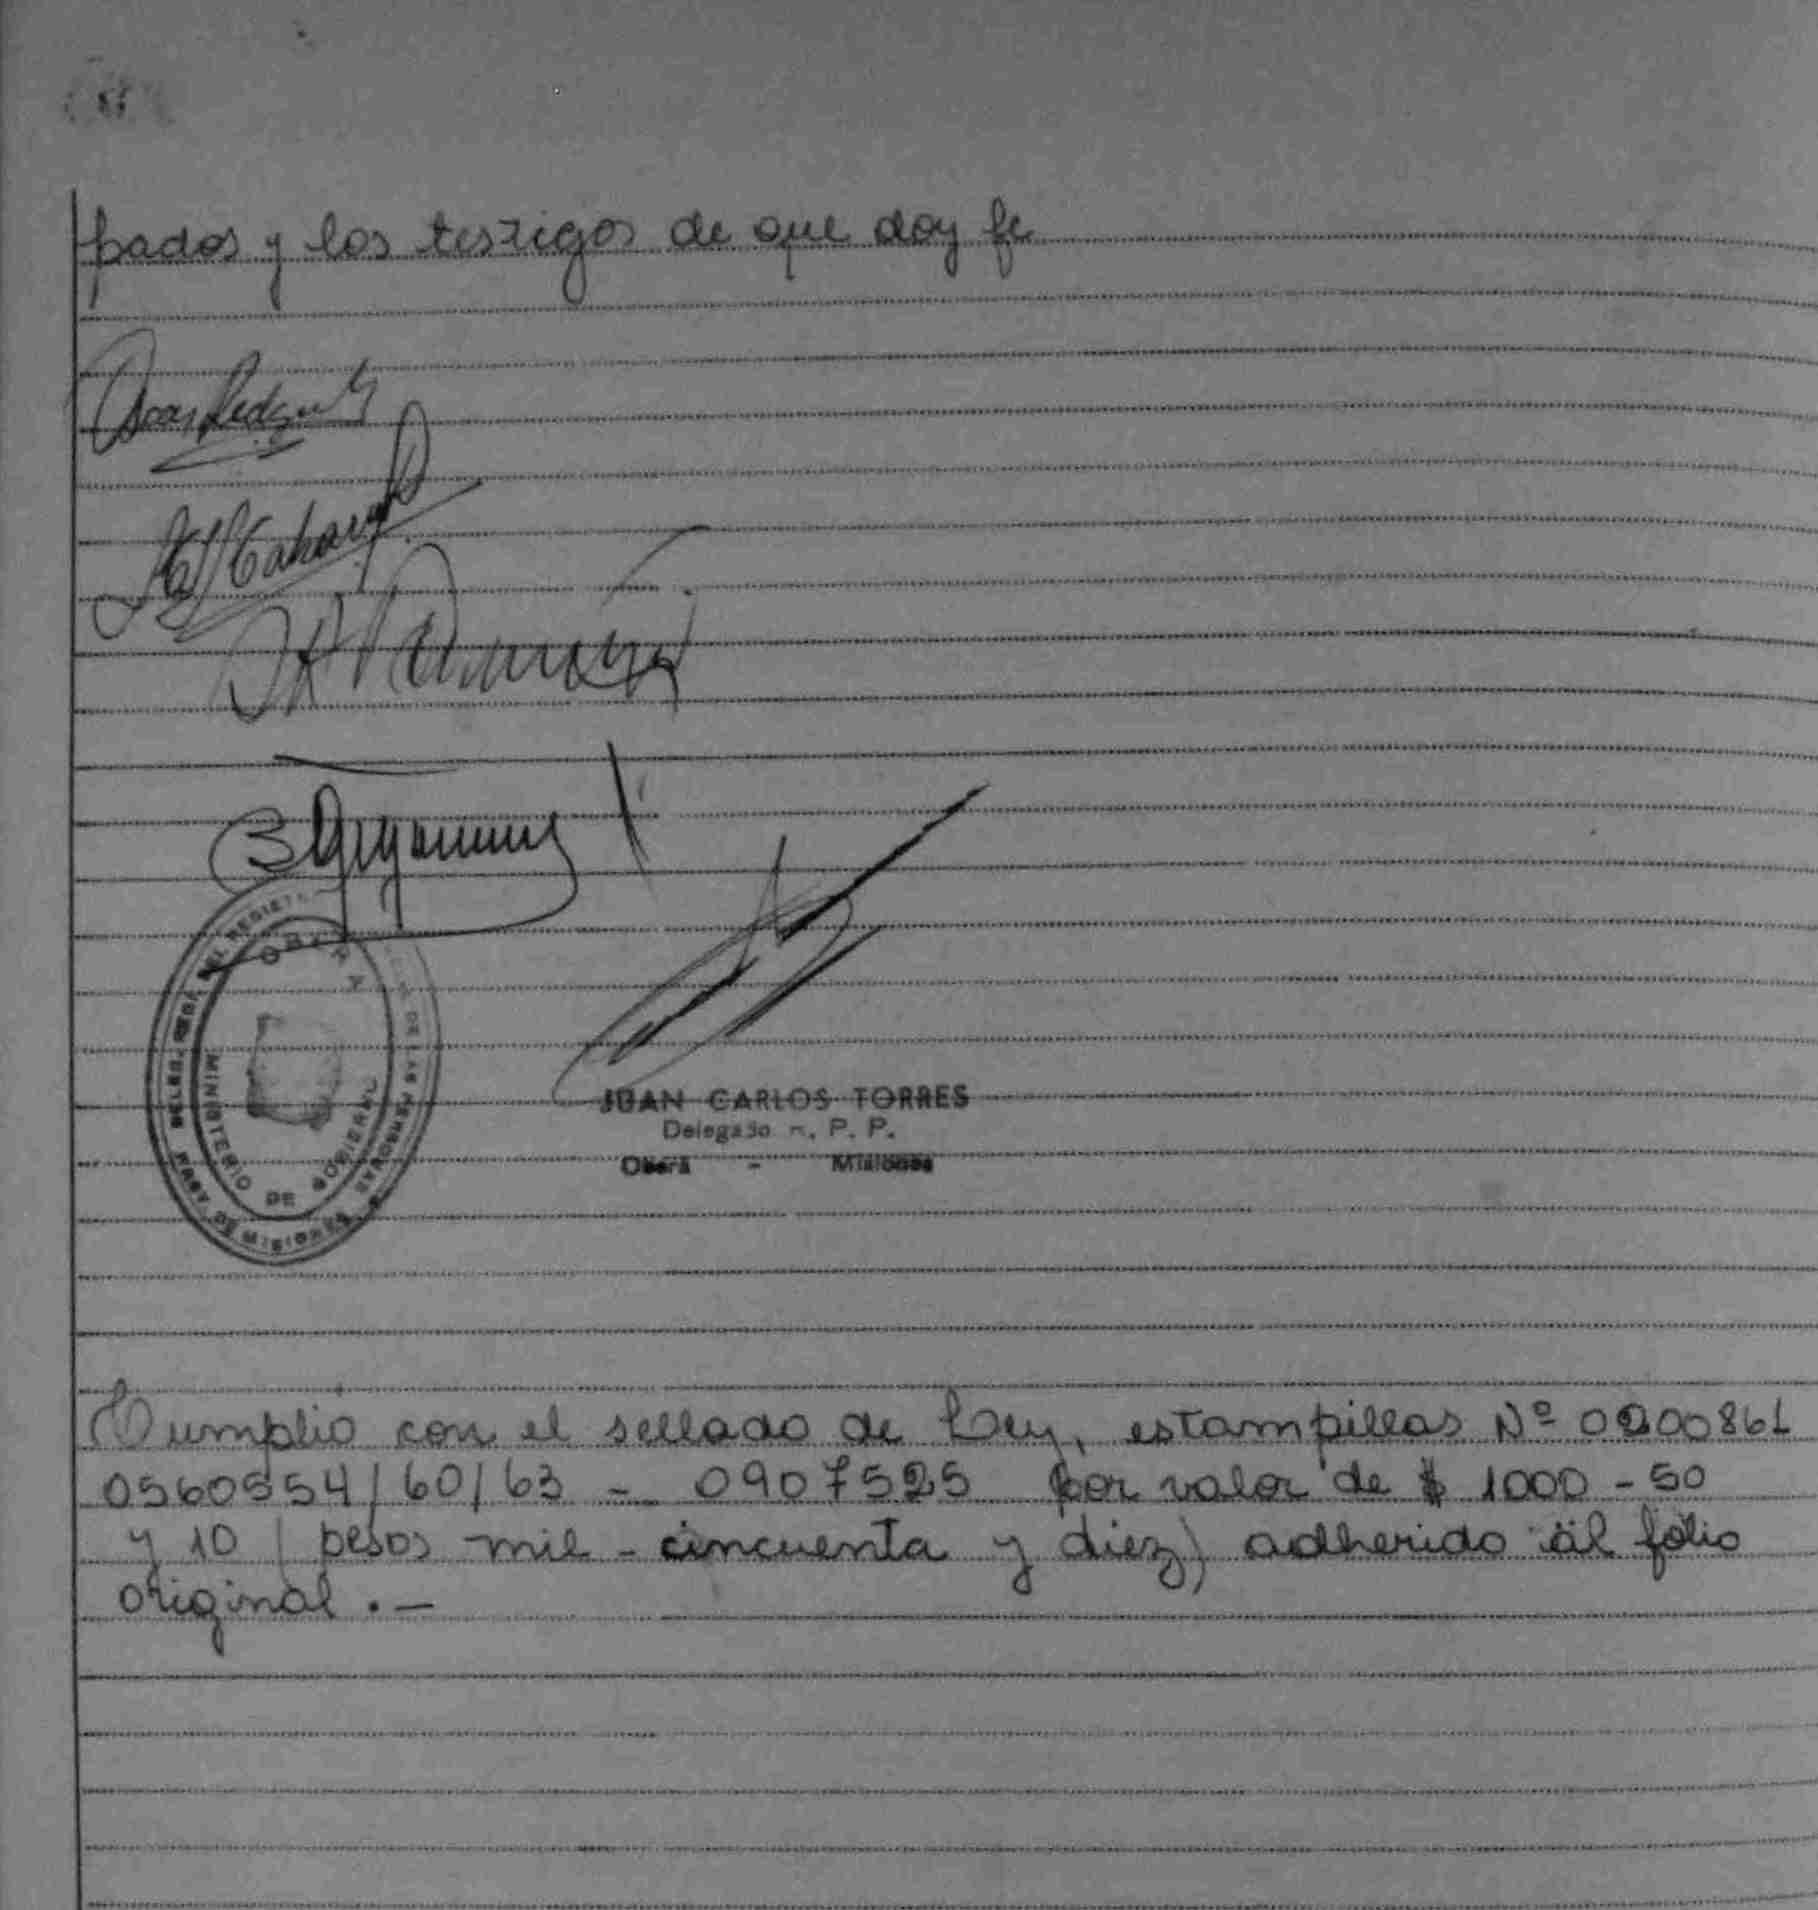 pados y los testigos de que doy fe
OBERA
MINISTERIO DE GOBIERNO
PROV. DE MISIONES
DE LAS PERSONAS
JUAN CARLOS TORRES
Delegado R. P. P.
Oberá - Misiones
Cumplio con el sellado de Ley, estampillas Nº 0200861
0560554/60/63 - 0907525 por valor de $ 1000 - 50
y 10 (pesos mil - cincuenta y diez) adherido al folio
original . -